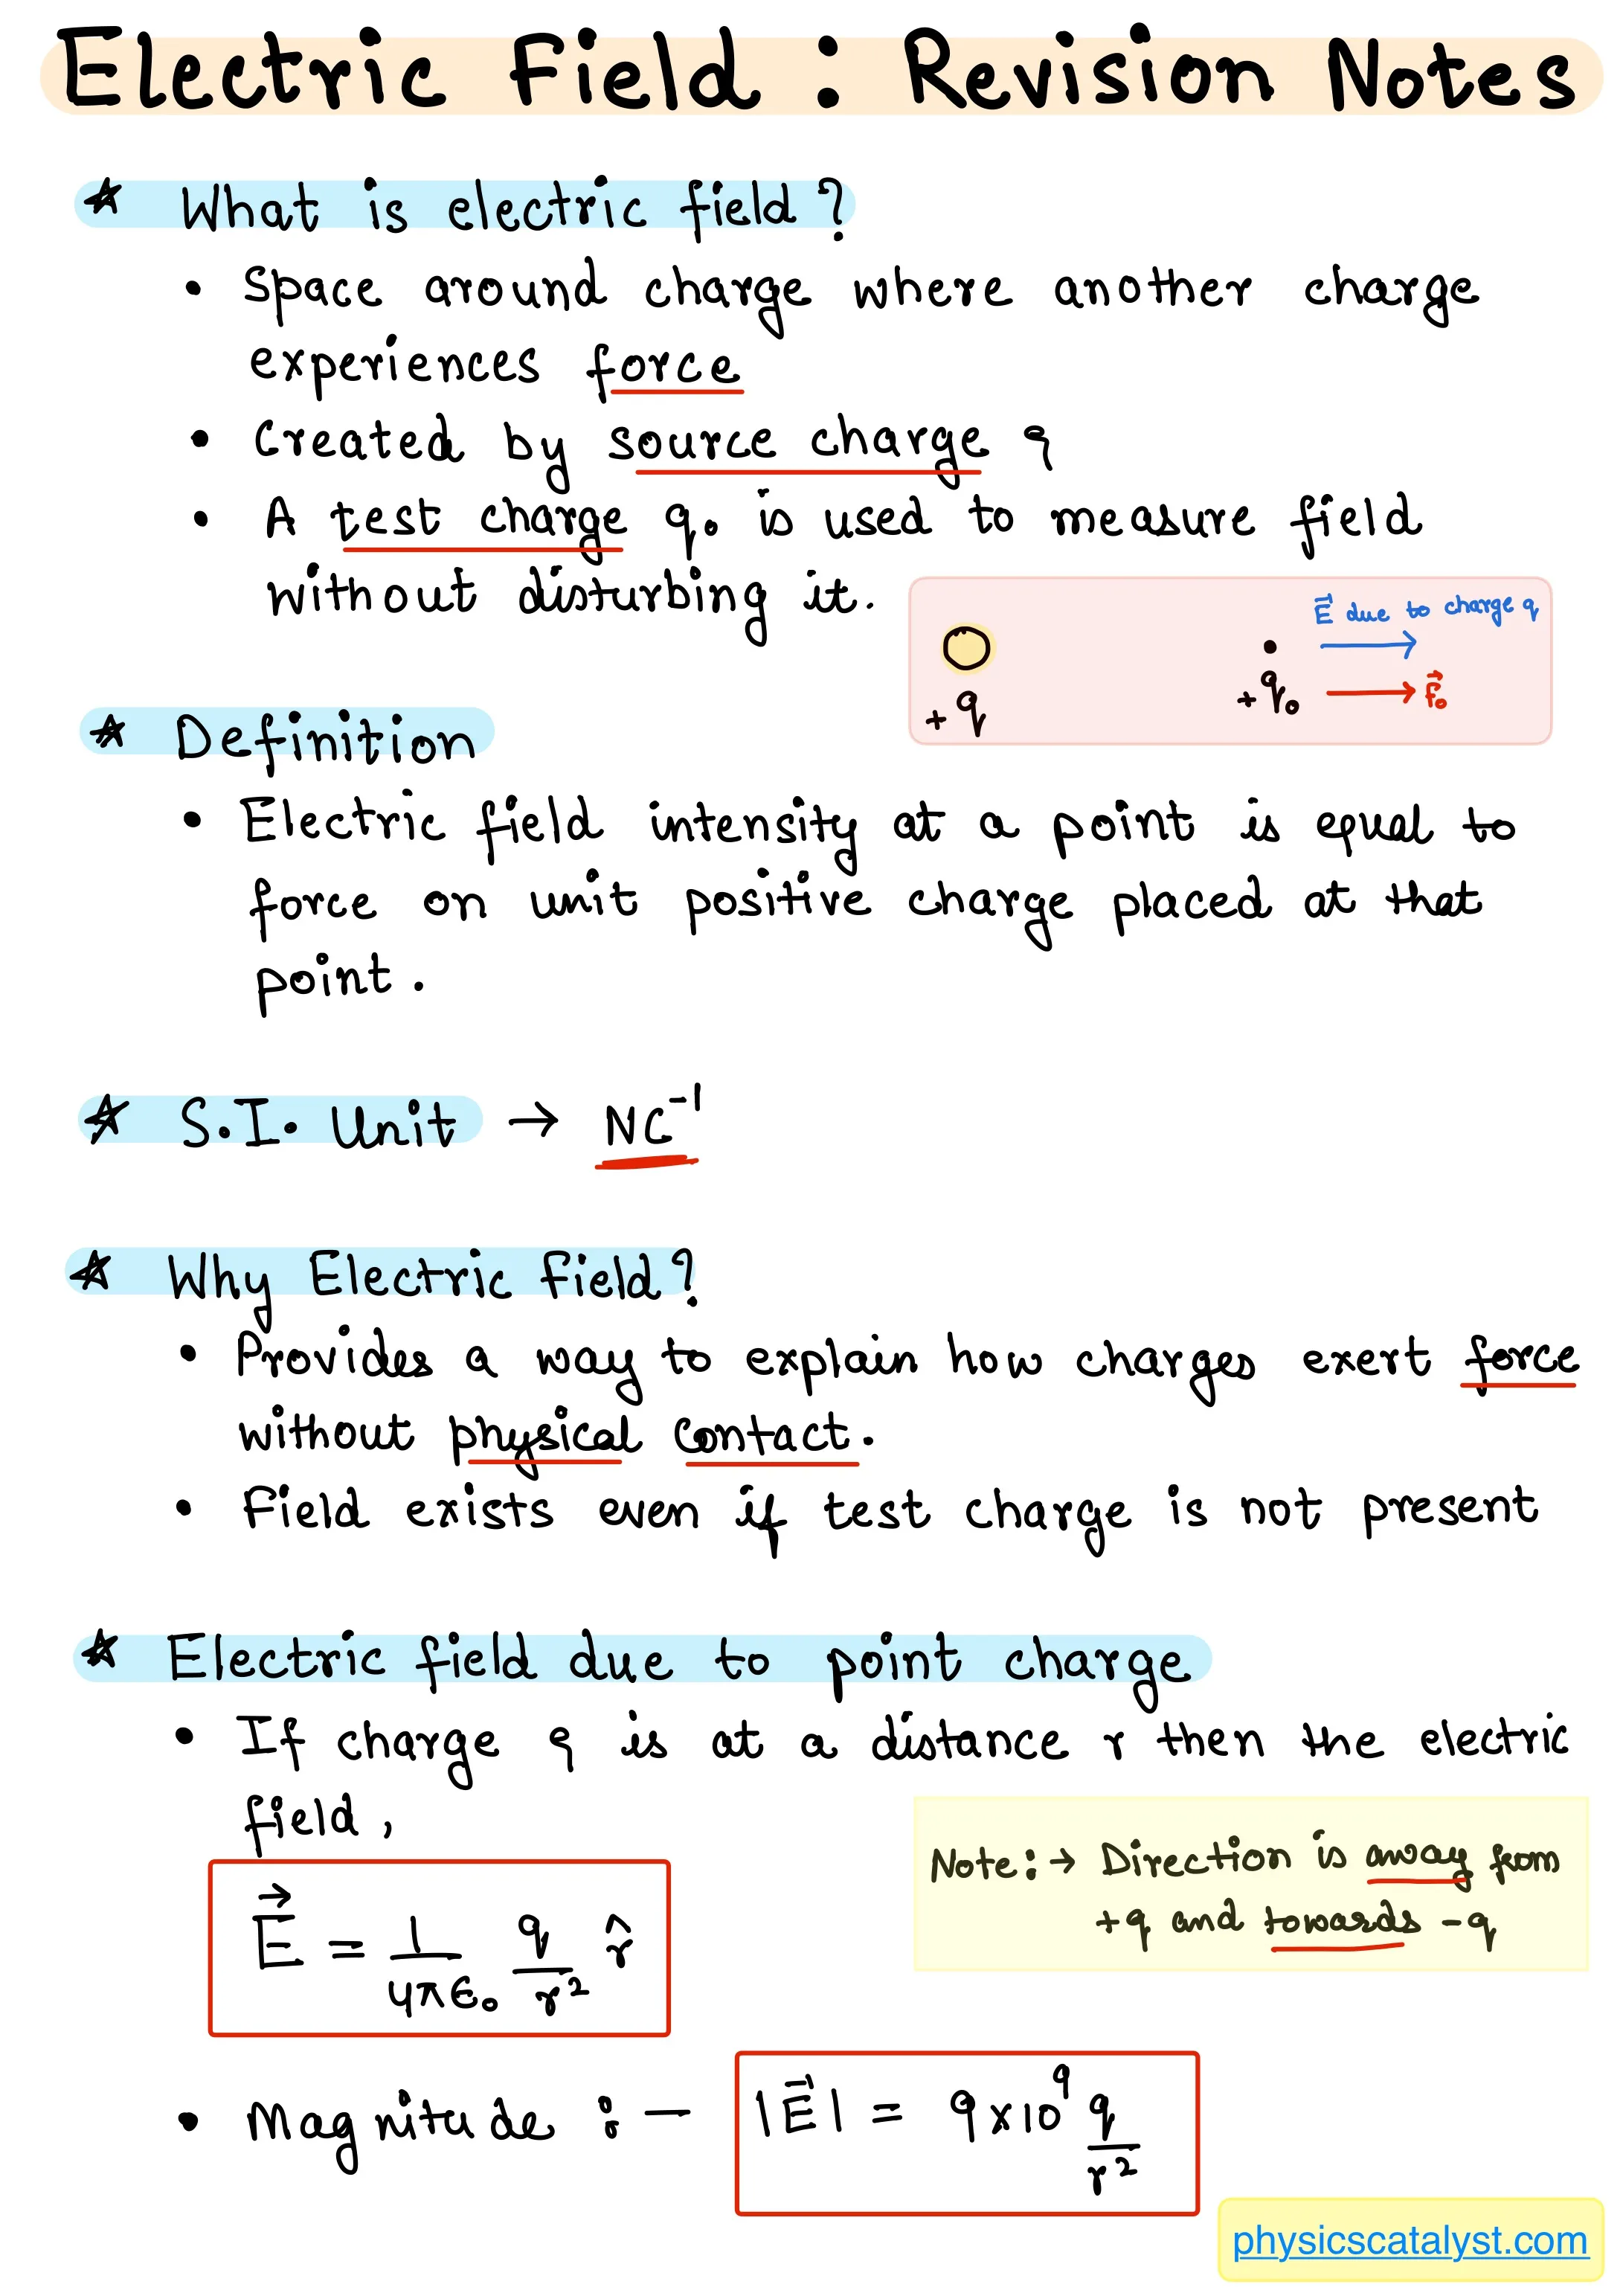 Electric Field : Revision Notes
☆ What is electric field?
• Space around charge where another charge
experiences force
• Created by source charge q
• A test charge q₀ is used to measure field
without disturbing it.
E⃗ due to charge q
+q
+q₀ → F⃗₀
☆ Definition
• Electric field intensity at a point is equal to
force on unit positive charge placed at that
point.
☆ S.I. Unit → NC⁻¹
☆ Why Electric field?
• Provides a way to explain how charges exert force
without physical contact.
• Field exists even if test charge is not present
☆ Electric field due to point charge
• If charge q is at a distance r then the electric
field,
Note:→ Direction is away from
+q and towards -q
E⃗ = 1/4πϵ₀ q/r² r̂
• Magnitude :- |E⃗| = 9×10⁹ q/r²
physicscatalyst.com